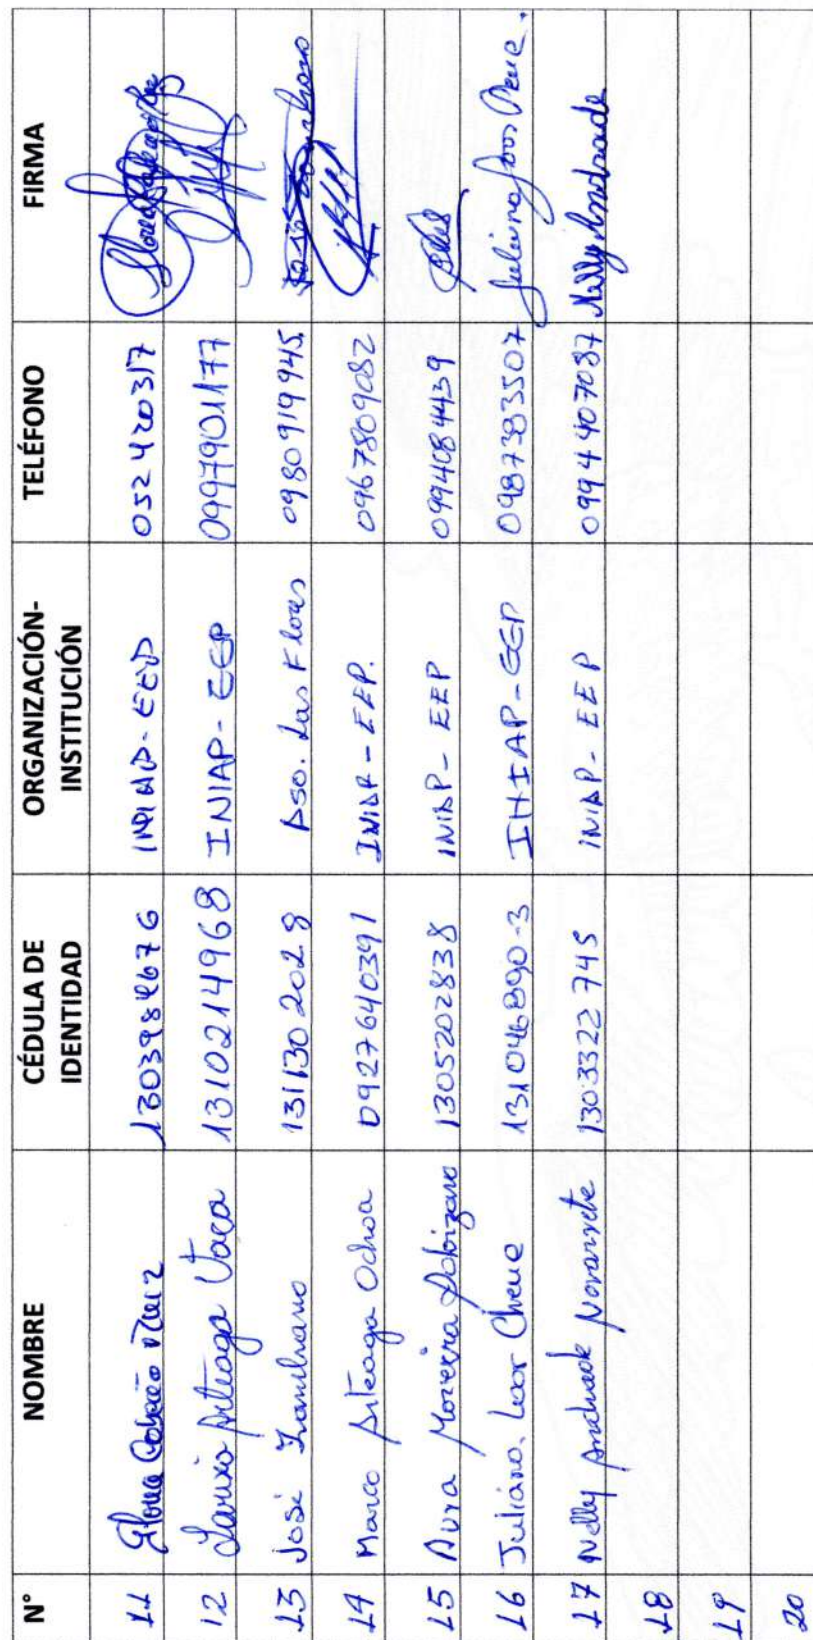 N° NOMBRE CÉDULA DE IDENTIDAD ORGANIZACIÓN-INSTITUCIÓN TELÉFONO FIRMA
11 INIAP-EEP 052420317
12 Arteaga Vaca 1310214968 INIAP-EEP 0997901177
13 José Zambrano 1311302028 Aso. Las Flores 0980919945 José Zambrano
14 Marco Arteaga Ochoa 0927640391 INIAP-EEP. 0967809082
15 Aura Moreira 1305202838 INIAP-EEP 0994084439
16 Juliana Loor 131046890-3 INIAP-EEP 0987383507 Juliana Loor
17 Nelly Andrade Navarrete 1303322745 INIAP-EEP 0994407087 Nelly Andrade
18
19
20